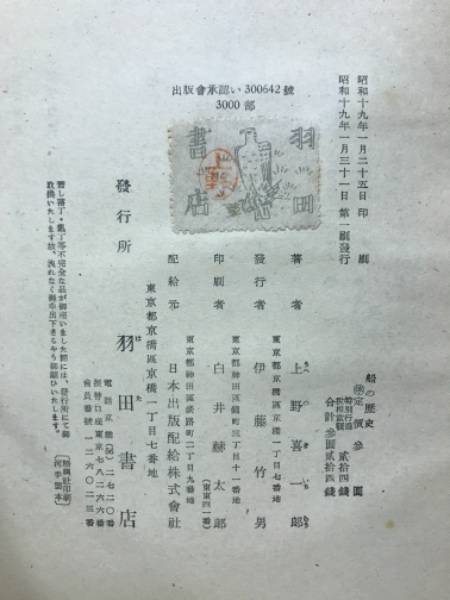 船の歴史
定價 參圓
特別行爲税相當額 貳拾四錢
合計 參圓貳拾四錢
昭和十九年一月二十五日 印刷
昭和十九年一月三十一日 第一刷發行
出版會承認い 300642 號
3000 部
羽田書店
著者 上野喜一郎
東京都京橋區京橋一丁目七番地
發行者 伊藤竹男
東京都神田區錦町三丁目十一番地
印刷者 白井赫太郎
(東東四一番)
東京都神田區淡路町二丁目九番地
配給元 日本出版配給株式會社
東京都京橋區京橋一丁目七番地
發行所 羽田書店
電話京橋 二七二〇番
振替口座東京七八二六六番
會員番號 一二六〇二三番
若し落丁・亂丁等不完全な品が御座いました節には、發行所にて御
取換いたします故、洩れなく御申出下さるやう御願ひいたします。
精興社印刷
河手製本